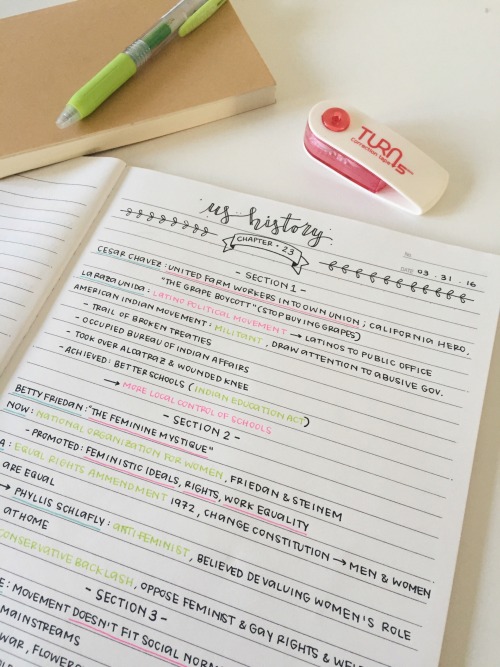 TURN 5
correction tape
us history
CHAPTER • 23
NO.
DATE 03 • 31 • 16
- SECTION 1 -
CESAR CHAVEZ : UNITED FARM WORKERS INTO OWN UNION ; CALIFORNIA HERO,
"THE GRAPE BOYCOTT" (STOP BUYING GRAPES)
LA RAZA UNIDA : LATINO POLITICAL MOVEMENT → LATINOS TO PUBLIC OFFICE
AMERICAN INDIAN MOVEMENT : MILITANT , DRAW ATTENTION TO ABUSIVE GOV.
- TRAIL OF BROKEN TREATIES
- OCCUPIED BUREAU OF INDIAN AFFAIRS
- TOOK OVER ALCATRAZ & WOUNDED KNEE
- ACHIEVED : BETTER SCHOOLS (INDIAN EDUCATION ACT)
→ MORE LOCAL CONTROL OF SCHOOLS
- SECTION 2 -
BETTY FRIEDAN : "THE FEMININE MYSTIQUE"
NOW : NATIONAL ORGANIZATION FOR WOMEN , FRIEDAN & STEINEM
- PROMOTED : FEMINISTIC IDEALS, RIGHTS, WORK EQUALITY
A : EQUAL RIGHTS AMMENDMENT 1972 , CHANGE CONSTITUTION → MEN & WOMEN
ARE EQUAL
→ PHYLLIS SCHLAFLY : ANTIFEMINIST , BELIEVED DEVALUING WOMEN'S ROLE
AT HOME
CONSERVATIVE BACKLASH , OPPOSE FEMINIST & GAY RIGHTS &
- SECTION 3 -
E : MOVEMENT DOESN'T FIT SOCIAL
MAINSTREAMS
WAR, FLOWER